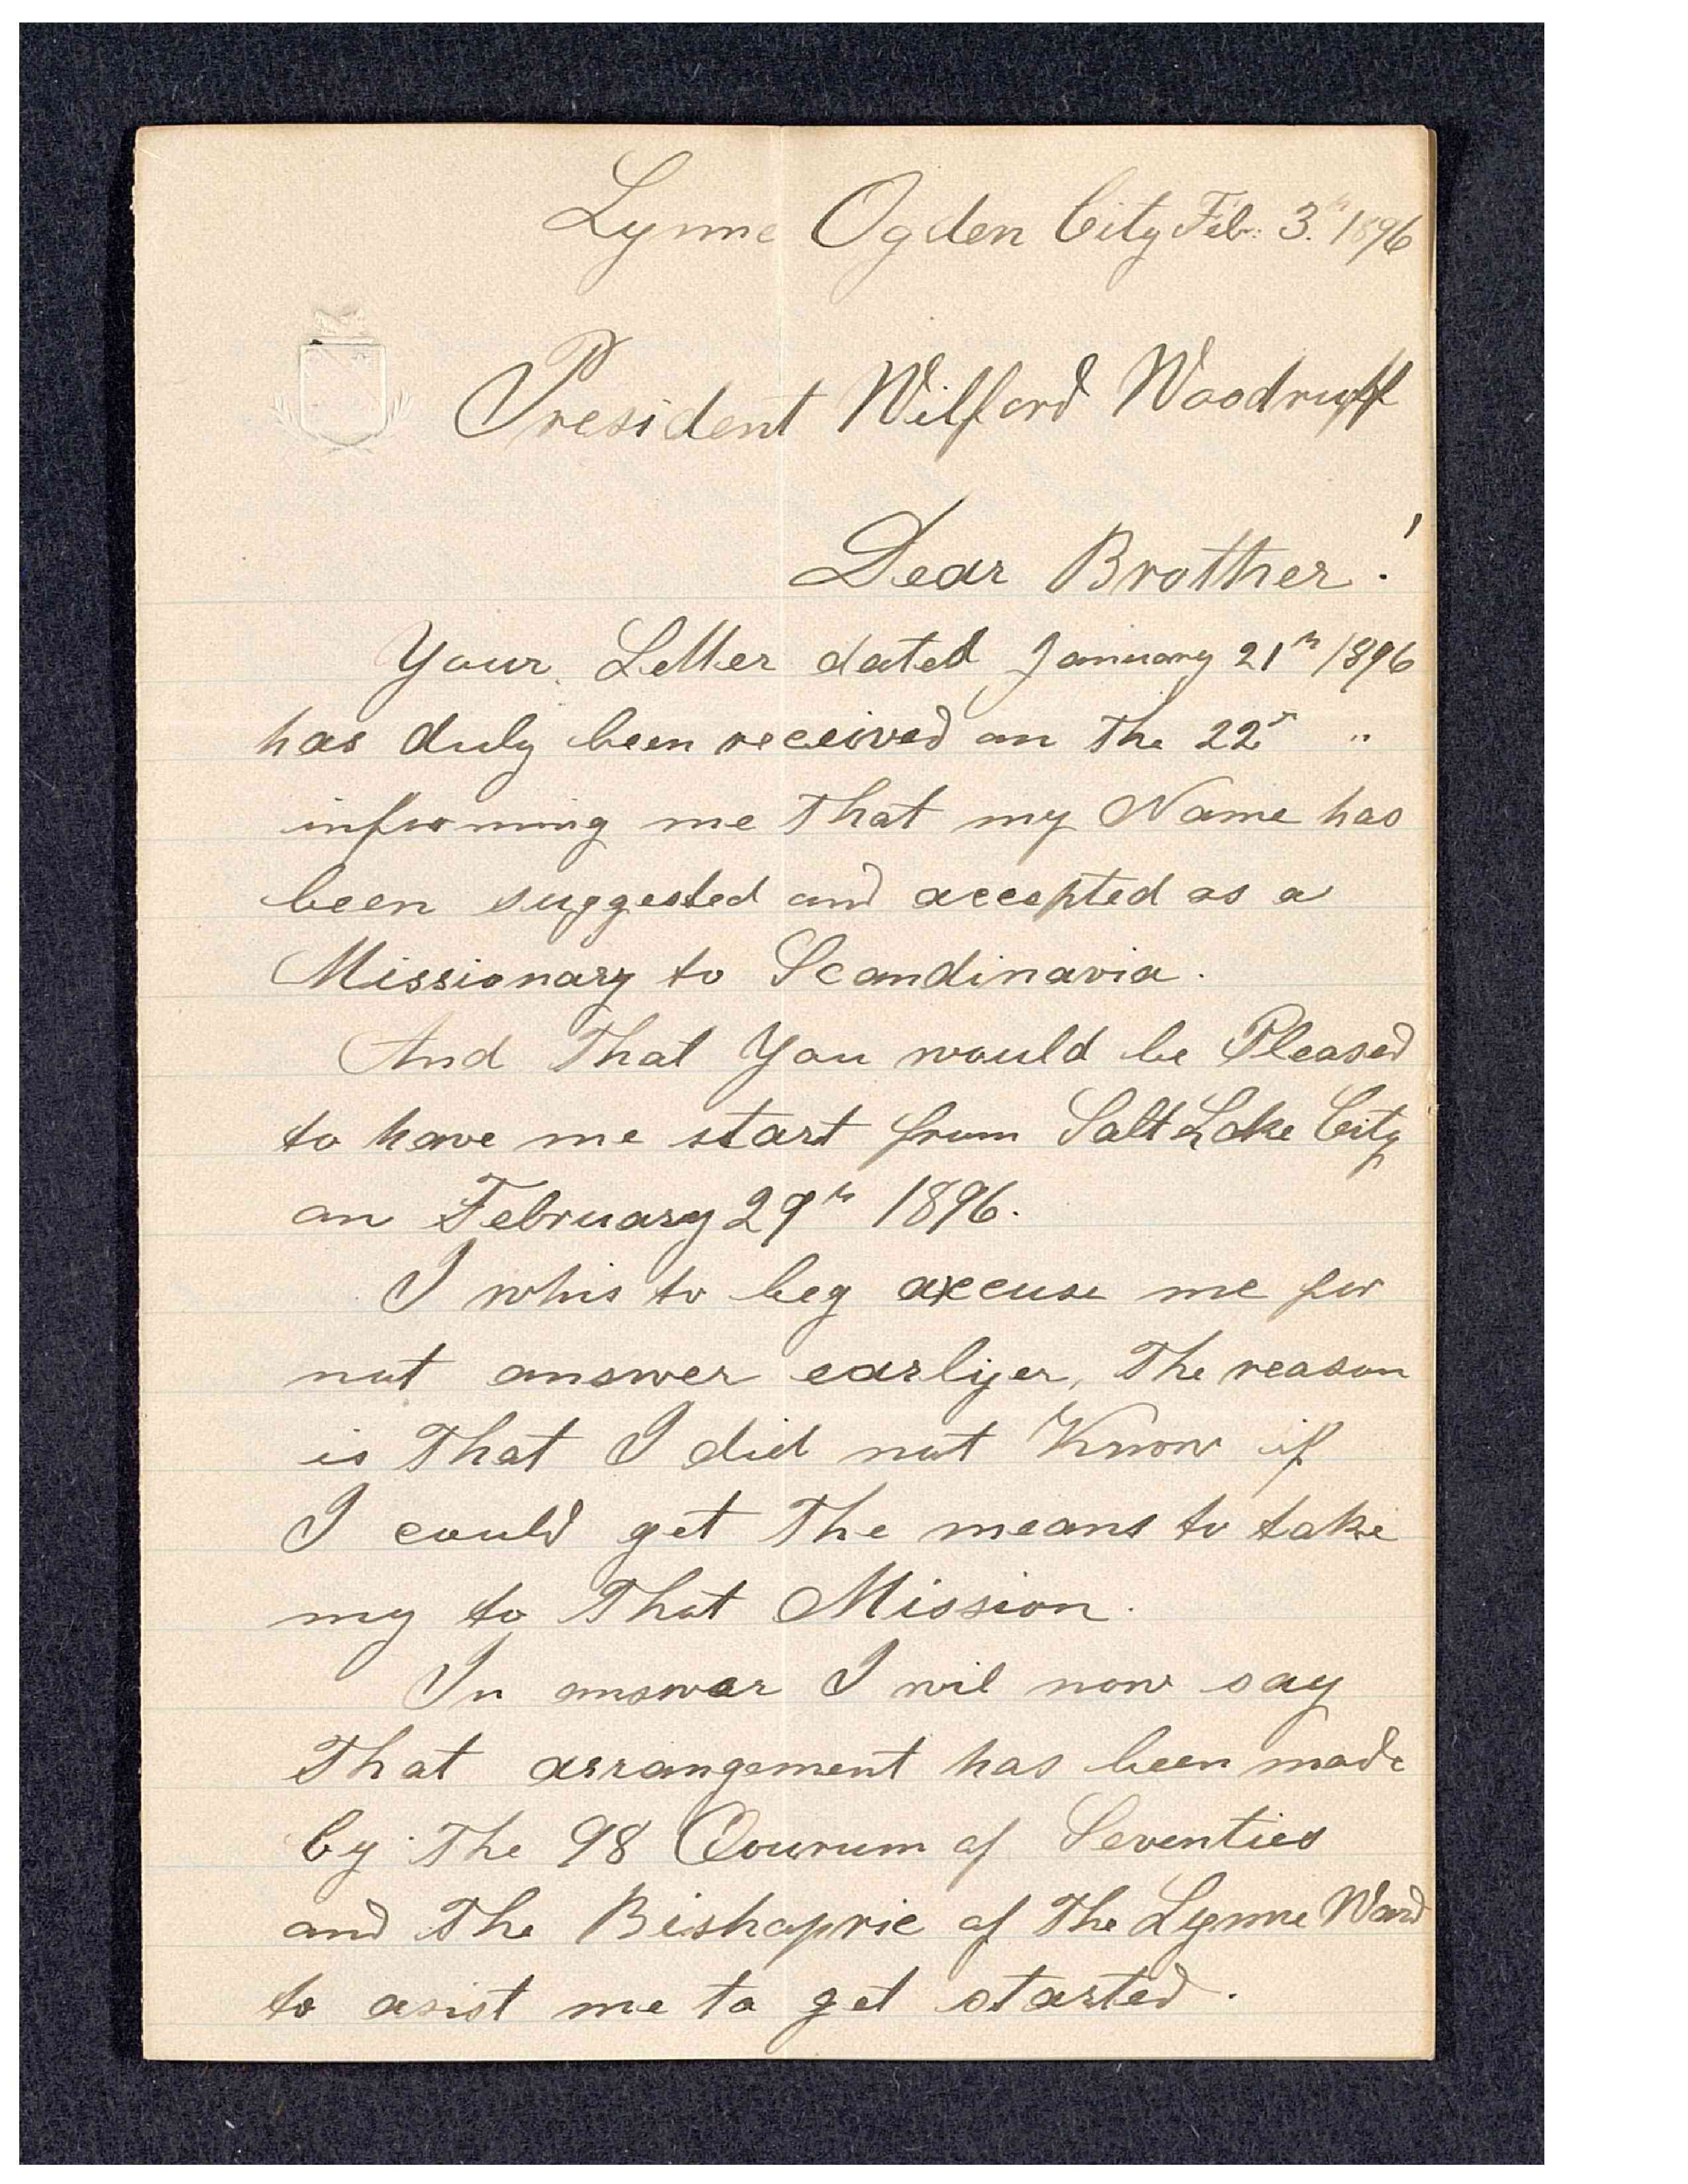 Lynne Ogden City Feb: 3.th 1896
President Wilford Woodruff
Dear Brother!
Your Letter dated January 21th 1896
has duly been received on the 22th "
informing me that my Name has
been suggested and accepted as a
Missionary to Scandinavia.
And that You would be Pleased
to have me start from Salt Lake City
on February 29th 1896.
I whis to beg axcuse me for
not answer earlyer, the reason
is that I did not Know if
I could get the means to take
my to that Mission.
In answar I wil now say
that arrangement has been made
by the 98 Qourum of Seventies
and the Bishopric of the Lynne Ward
to asist me to get started.